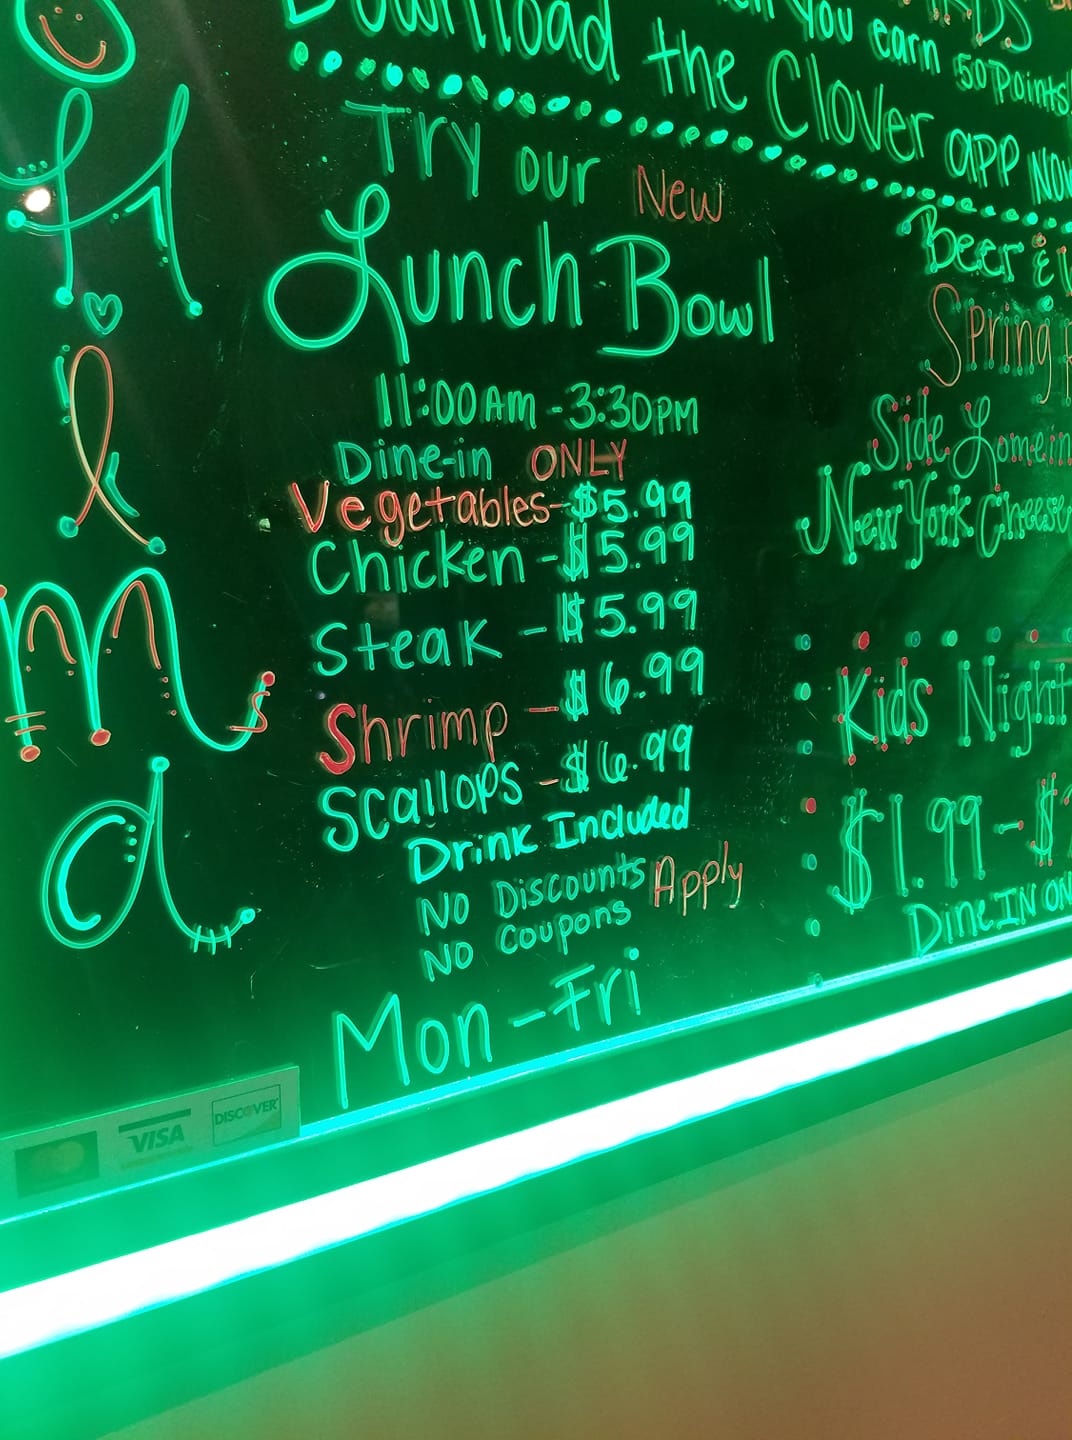 Download the Clover app Now
you earn
50 Points!
Try our New
Lunch Bowl
11:00AM - 3:30PM
Dine-in ONLY
Vegetables - $5.99
Chicken - $5.99
Steak - $5.99
Shrimp - $6.99
Scallops - $6.99
Drink Included
No Discounts Apply
No Coupons
Mon - Fri
Beer &
Spring
Side Lomein
New York Cheese
Kids Night
$1.99 - $
Dine IN ON
VISA
DISCOVER